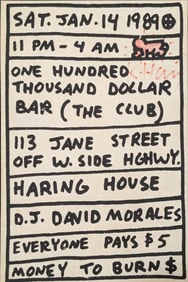 SAT. JAN. 14 1989
11 PM - 4 AM
ONE HUNDRED
THOUSAND DOLLAR
BAR (THE CLUB)
113 JANE STREET
OFF W. SIDE HGHWY.
HARING HOUSE
D.J. DAVID MORALES
EVERYONE PAYS $5
MONEY TO BURN $